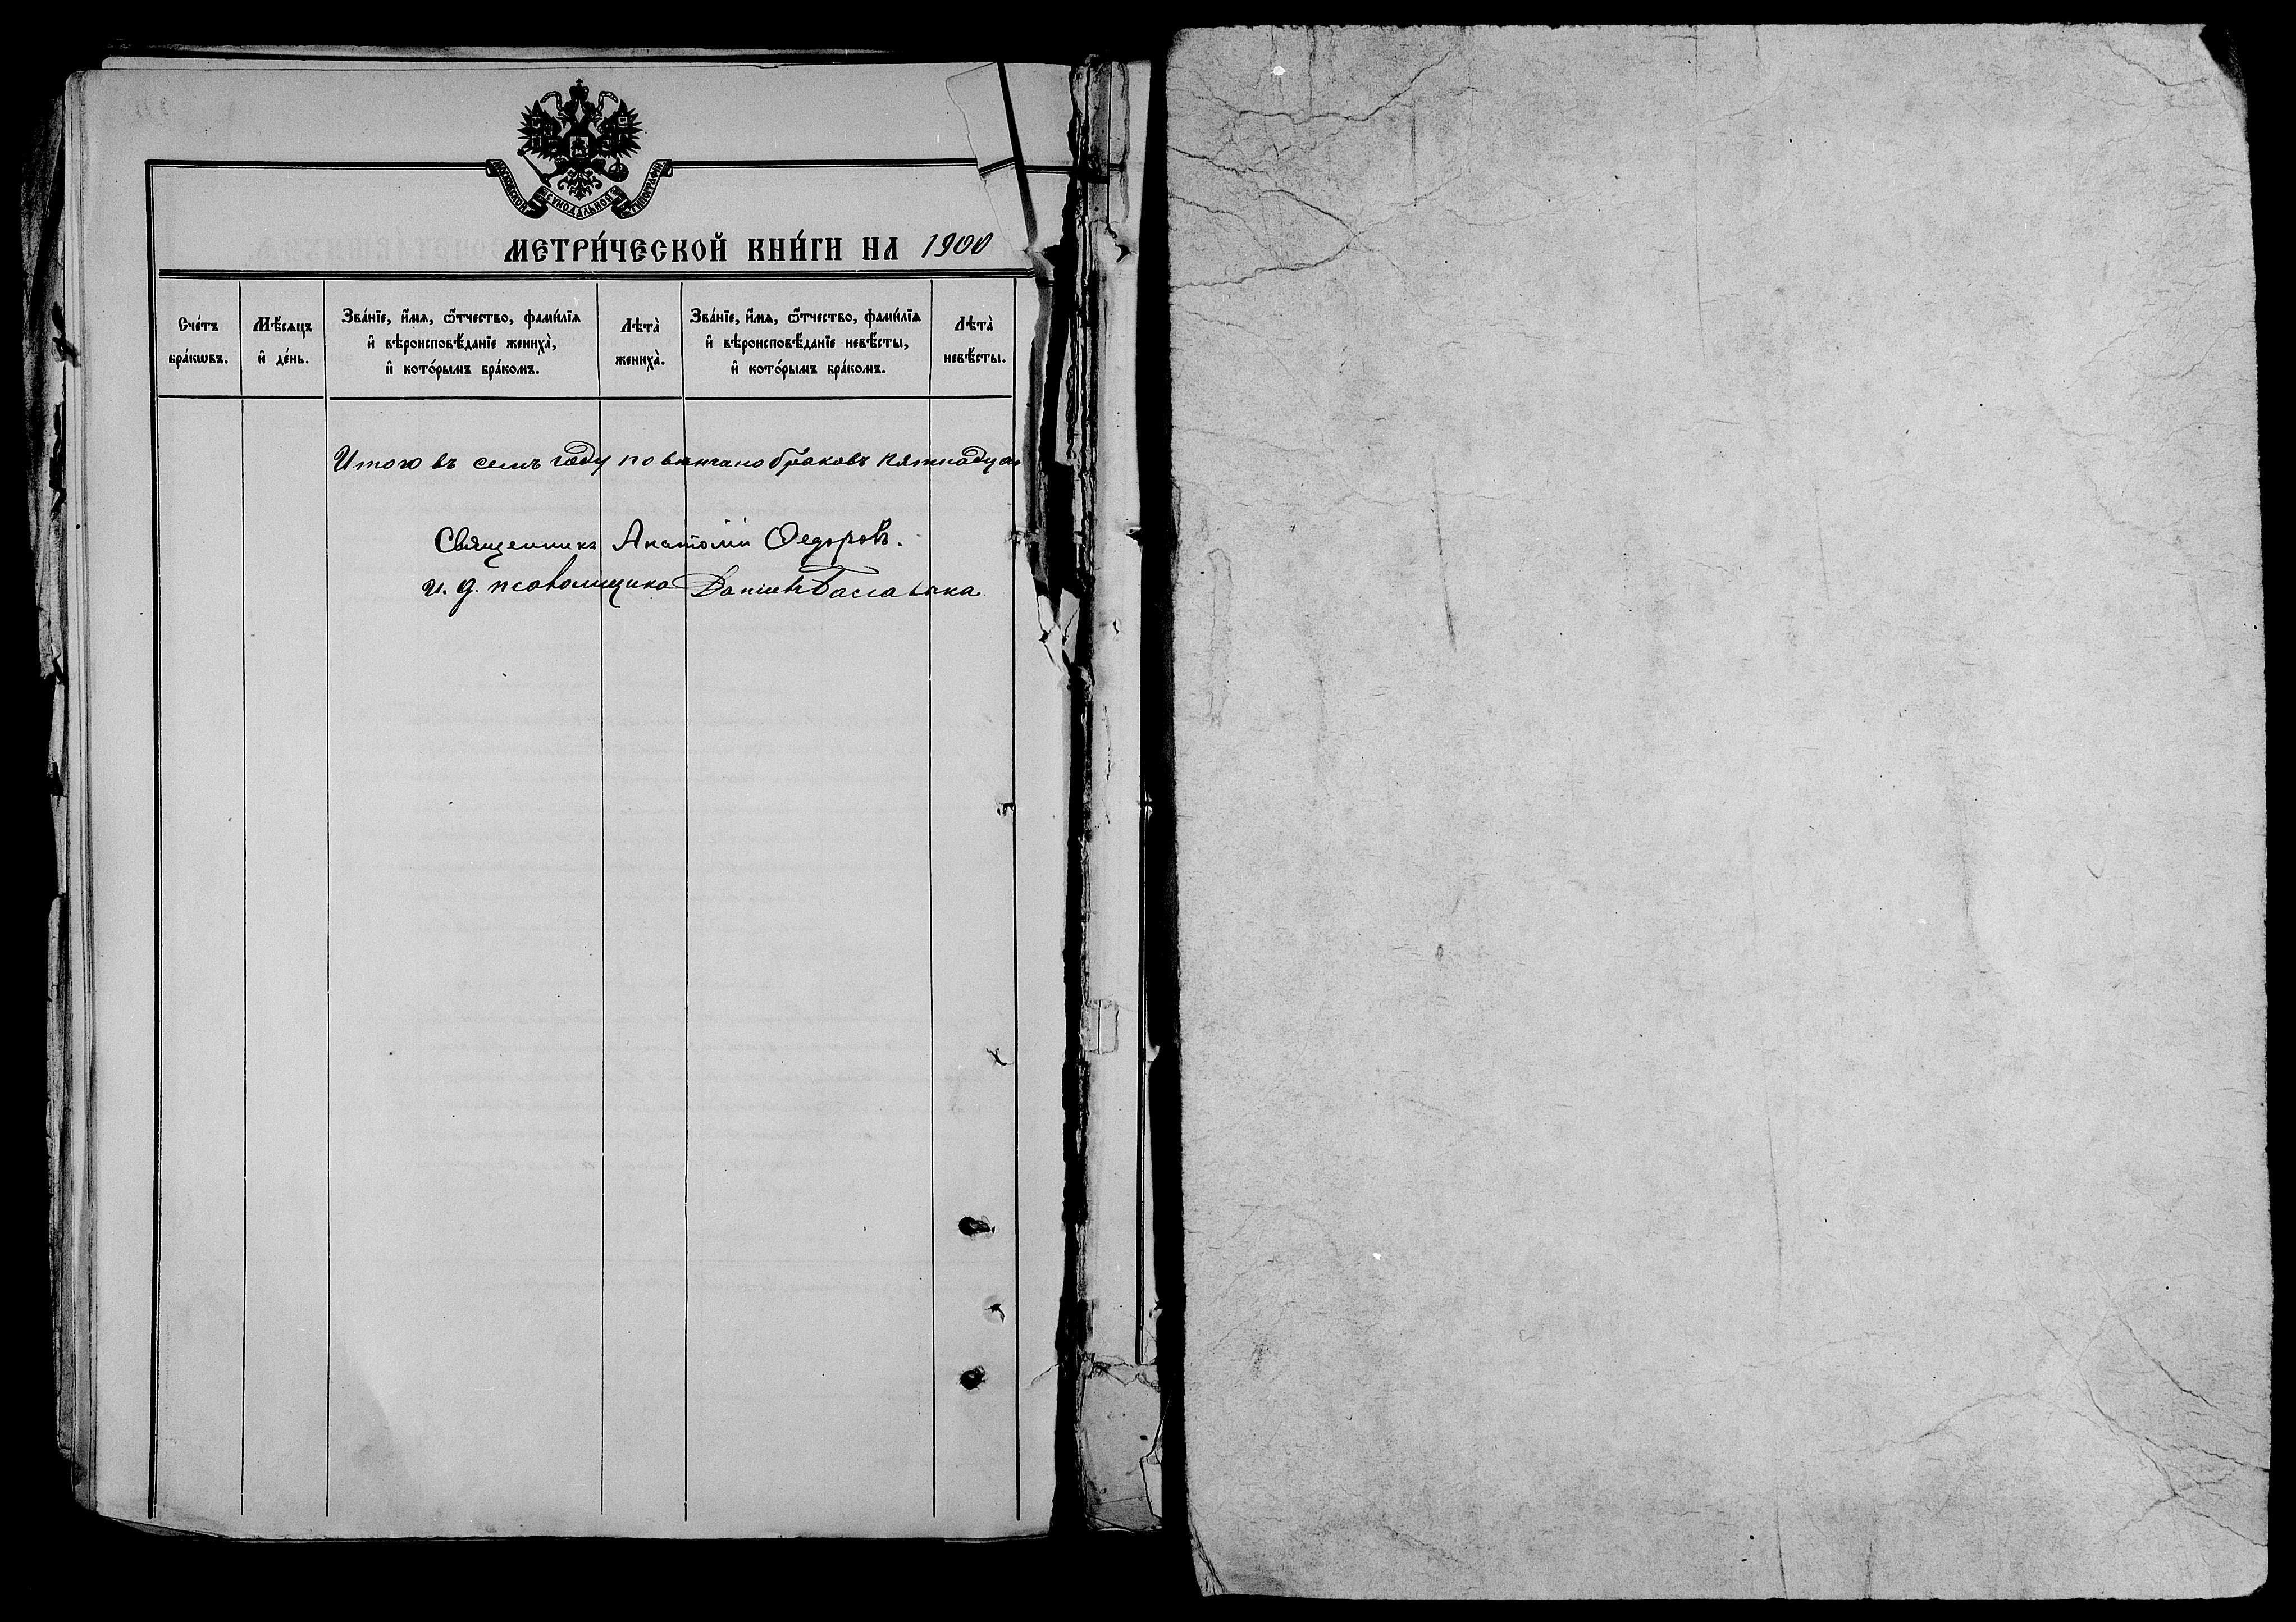 МОСКОВСКОЙ СѴНОДАЛЬНОЙ ТИПОГРАФІИ
МЕТРИ́ЧЕСКОЙ КНИ́ГИ НА 1900
Сче́тъ бра́кѡвъ.
Мѣ́сяцъ и҆ де́нь.
Зва́нїе, и҆́мѧ, ѻ҆́тчество, фами́лїѧ
и҆ вѣроисповѣ́данїе жениха̀,
и҆ кото́рымъ бра́комъ.
Лѣта̀ жениха̀.
Зва́нїе, и҆́мѧ, ѻ҆́тчество, фами́лїѧ
и҆ вѣроисповѣ́данїе невѣ́сты,
и҆ кото́рымъ бра́комъ.
Лѣта̀ невѣ́сты.
Итого въ семъ году повѣнчано браковъ пятнадца
Священникъ Анатолій Ѳедоровъ.
и. д. псаломщика Даніилъ